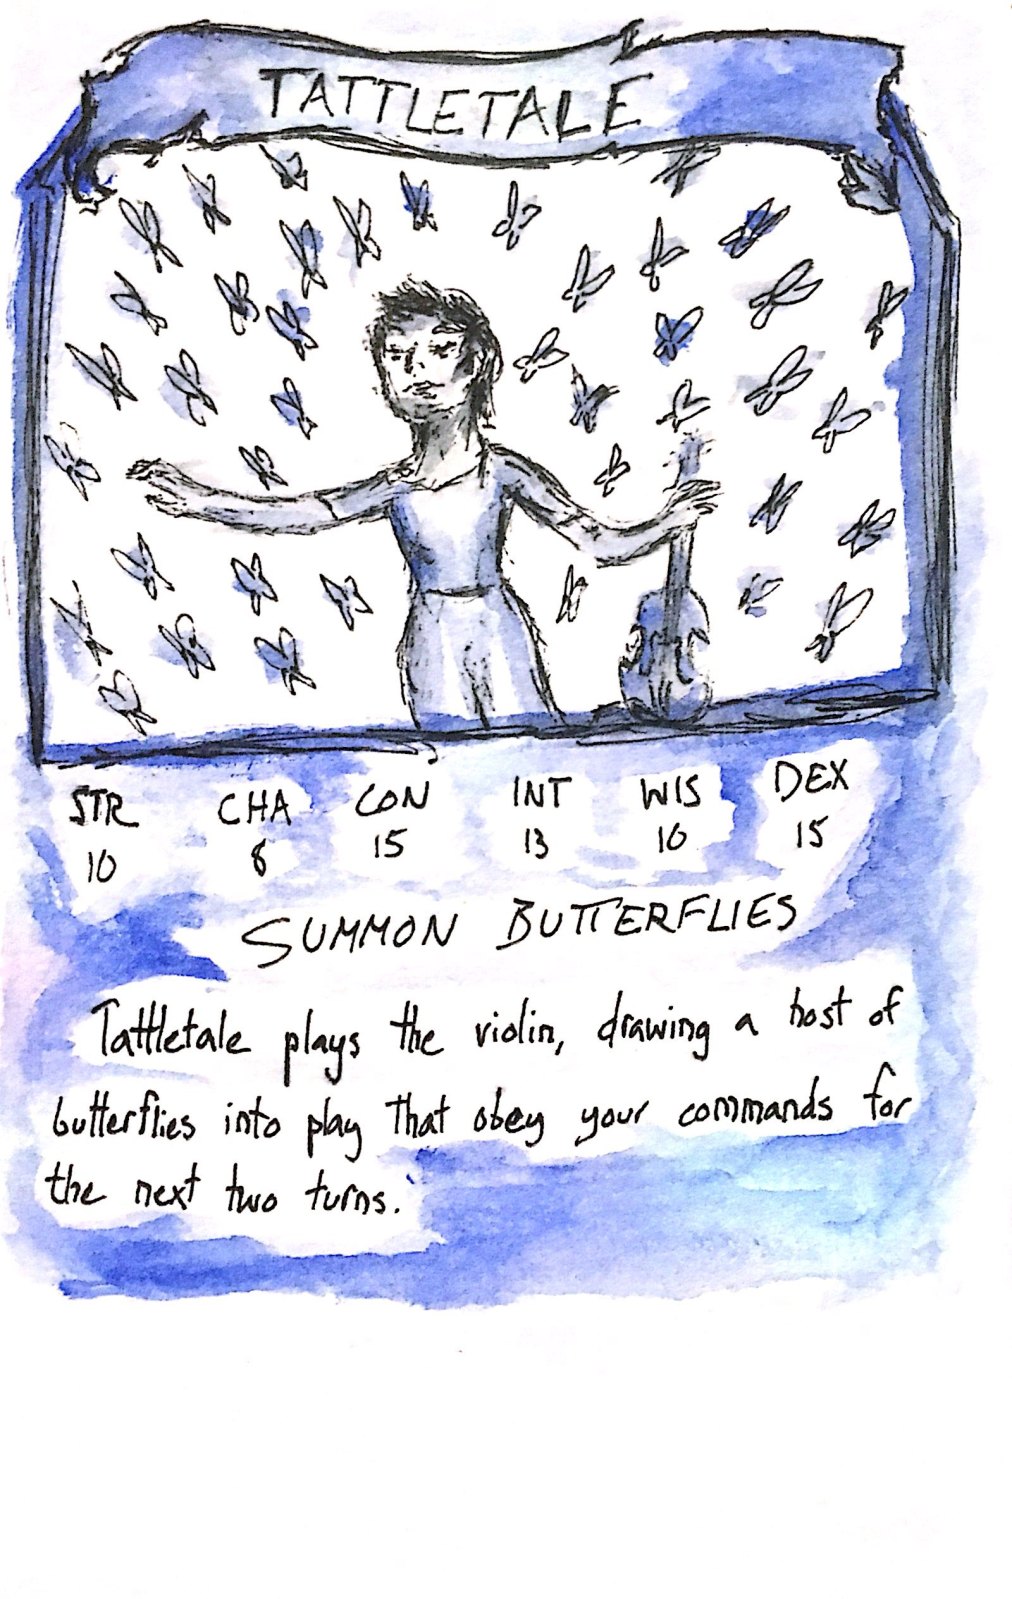 TATTLETALE
STR CHA CON INT WIS DEX
10 8 15 13 10 15
SUMMON BUTTERFLIES
Tattletale plays the violin, drawing a host of
butterflies into play that obey your commands for
the next two turns.